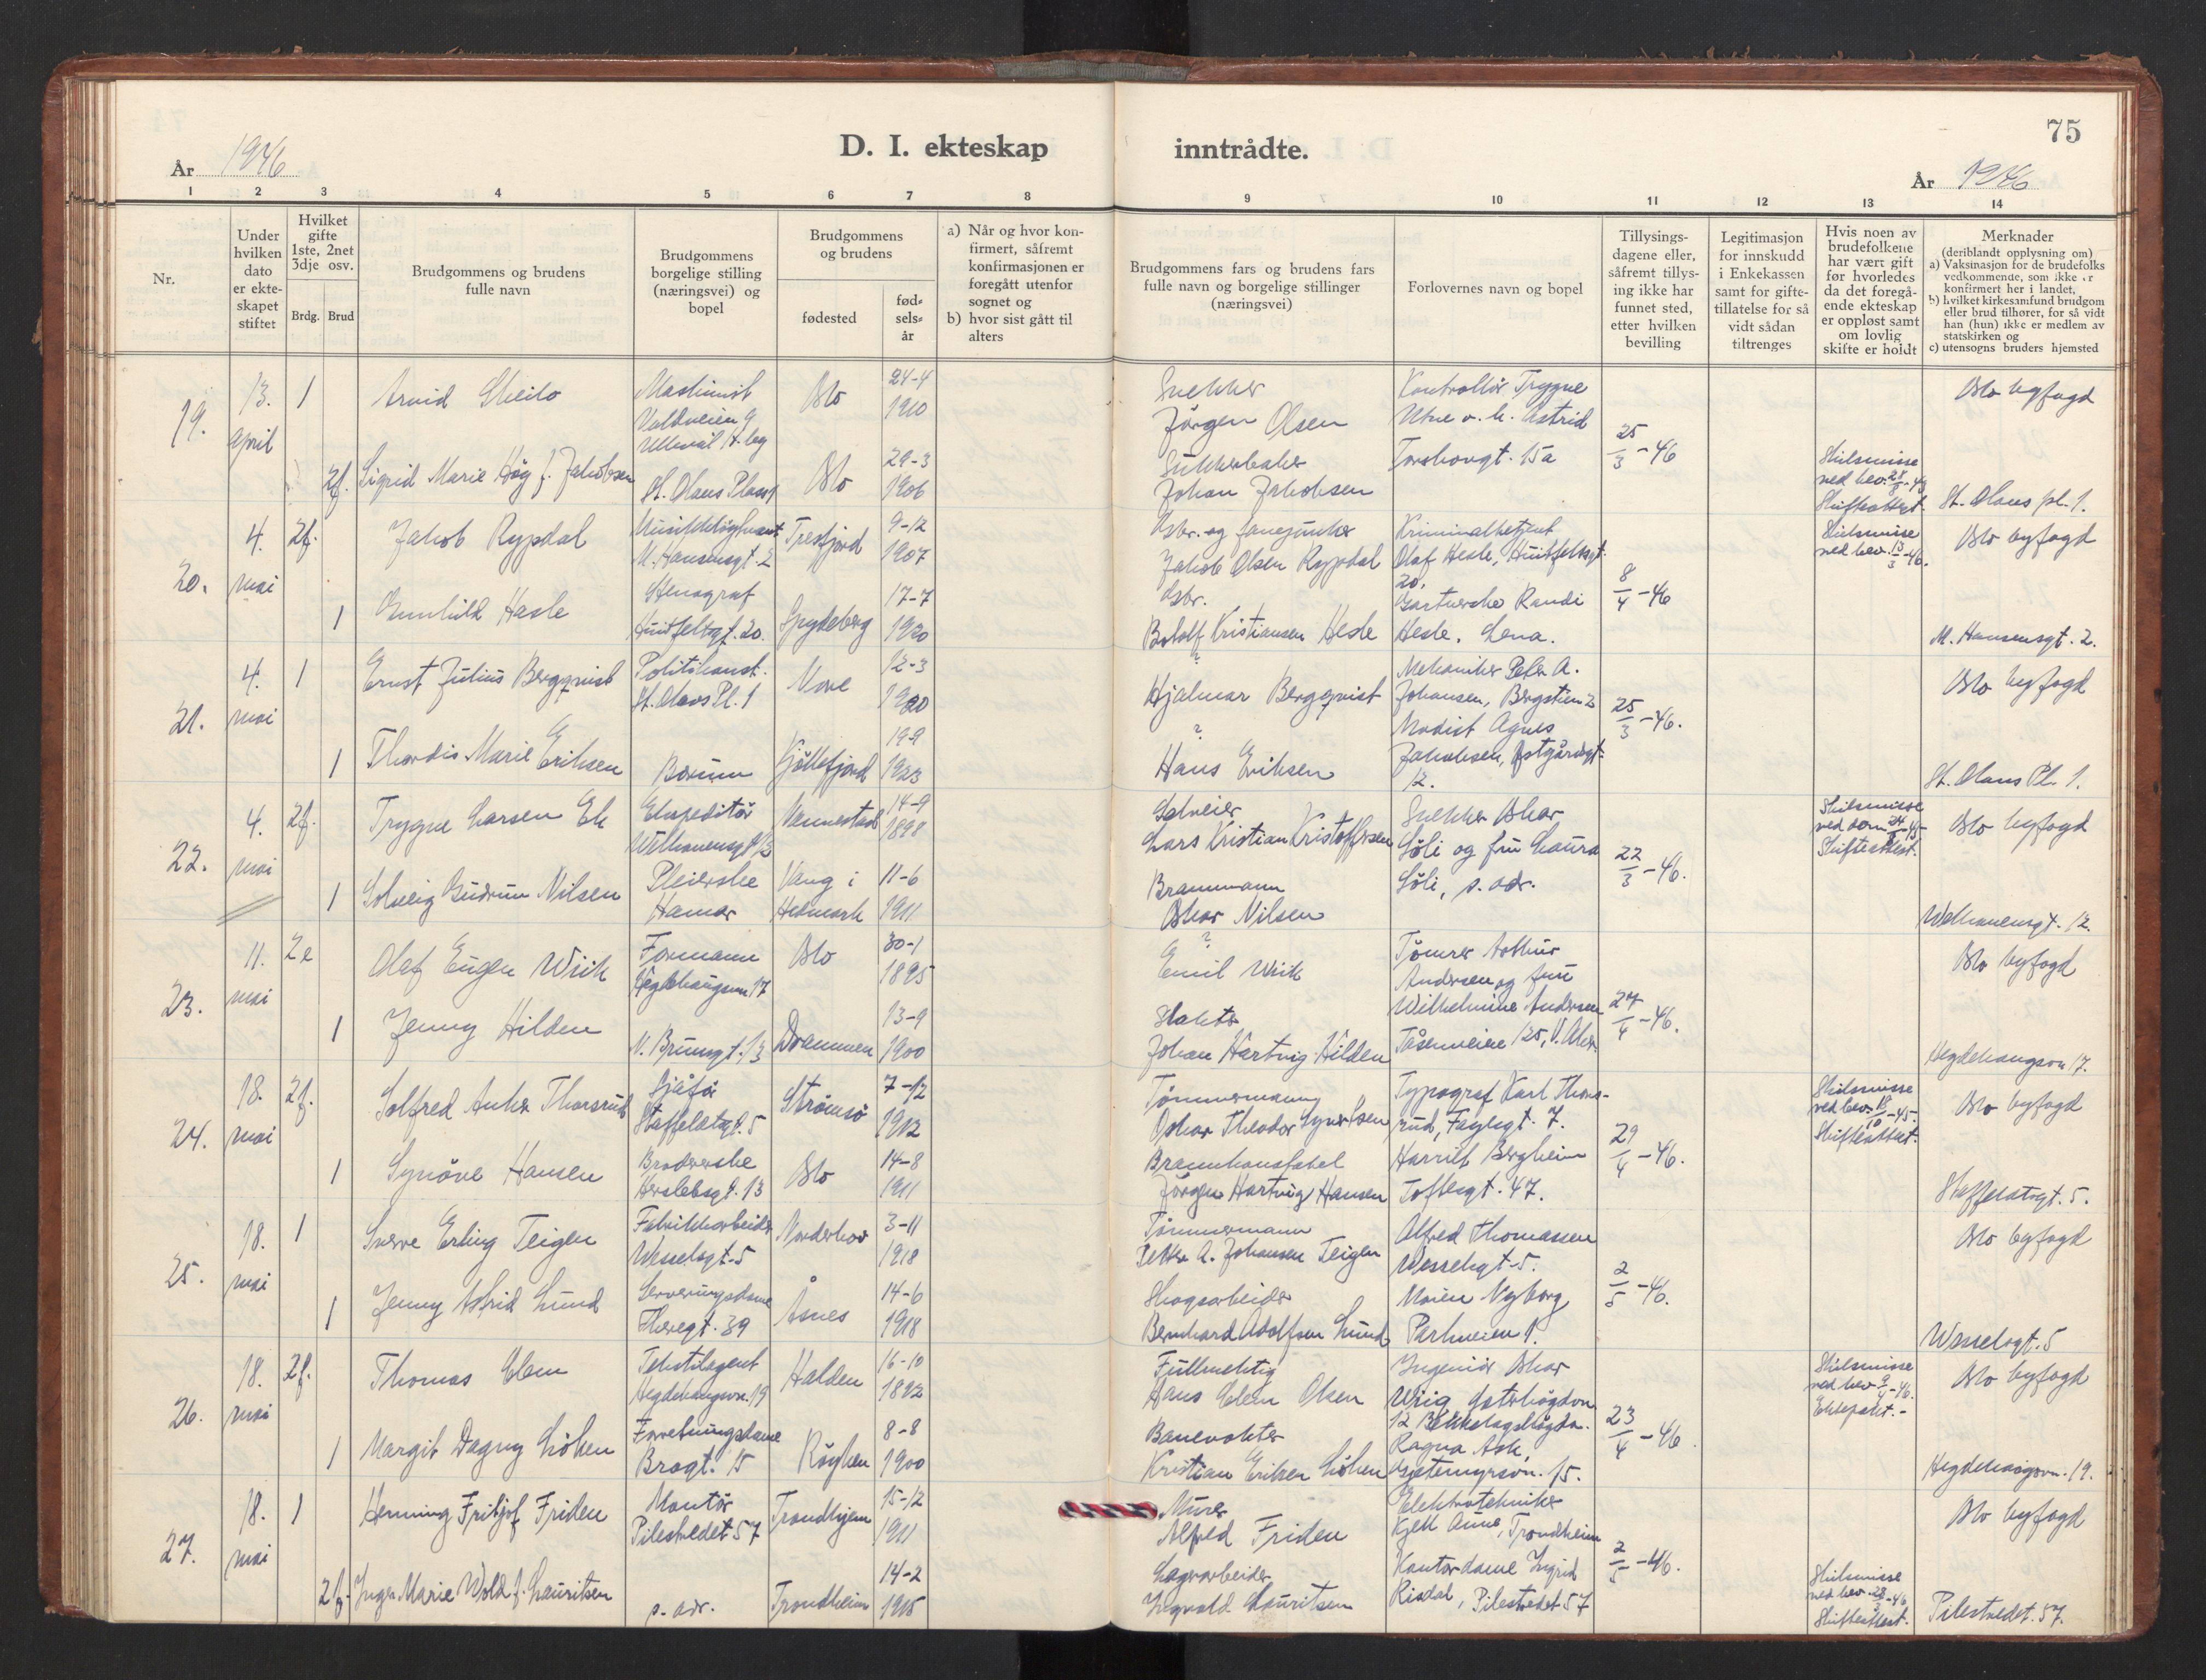 75
D. I. ekteskap inntrådte.
År 1946
År 1946
1 2 3 4 5 6 7 8 9 10 11 12 13 14
Nr.
Under
hvilken
dato
er ekte-
skapet
stiftet
Hvilket
gifte
1ste, 2net
3dje osv.
Brdg. Brud
Brudgommens og brudens
fulle navn
Brudgommens
borgelige stilling
(næringsvei) og
bopel
Brudgommens
og brudens
fødested
fød-
sels-
år
a) Når og hvor kon-
firmert, såfremt
konfirmasjonen er
foregått utenfor
sognet og
b) hvor sist gått til
alters
Brudgommens fars og brudens fars
fulle navn og borgelige stillinger
(næringsvei)
Forlovernes navn og bopel
Tillysings-
dagene eller,
såfremt tillys-
ing ikke har
funnet sted,
etter hvilken
bevilling
Legitimasjon
for innskudd
i Enkekassen
samt for gifte-
tillatelse for så
vidt sådan
tiltrenges
Hvis noen av
brudefolkene
har vært gift
før hvorledes
da det foregå-
ende ekteskap
er oppløst samt
om lovlig
skifte er holdt
Merknader
(deriblandt opplysning om)
a) Vaksinasjon for de brudefolks
vedkommende, som ikke er
konfirmert her i landet,
b) hvilket kirkesamfund brudgom
eller brud tilhører, for så vidt
han (hun) ikke er medlem av
statskirken og
c) utensogns bruders hjemsted
19.
13.
april
1
Arvid
Maskinist
Ullevål
Oslo
24-4
1910
Snekker
Jörgen Olsen
Kontrollör Trygve
Utne o. h. Astrid
Torshovgt. 15a
25/3-46
Oslo byfogd
2f.
Sigrid Marie Høg f. Jakobsen
St. Olavs Plass 1
Oslo
29-3
1906
Sukkerbaker
Johan Jakobsen
Skilsmisse
ved bev.
Skifteattest.
St. Olavs pl. 1.
20.
4.
mai
2f.
Jakob Rypdal
M. Hansensgt. 2
Tresfjord
9-12
1907
Gbr. og
Jakob Olsen Rypdal
Kriminalbetjent
Olaf Hesle, Huitfeldtsgt.
20.
Gartnerske Randi
Hesle. Lena.
8/4-46
Skilsmisse
ved bev. 13/3-46.
Oslo byfogd
1
Gunhild Hasle
Stenograf
Huitfeltsgt. 20.
Spydeberg
17-7
1920
Gbr.
Kristiansen Hesle
M. Hansensgt. 2.
21.
4.
mai
1
Ernst Julius Bergqvist
Politikonst.
St. Olavs Pl. 1
12-3
1920
?
Hjalmar Bergqvist
Mekaniker Peter A.
Johansen, Bergstien 2
Modist Agnes
Jakobsen, Østgårdsgt.
12.
25/3-46.
Oslo byfogd
1
Thordis Marie Eriksen
Bærum
Kjöllefjord
19-9
1923
?
Hans Eriksen
St. Olavs Pl. 1.
22.
4.
mai
2f.
Trygve Larsen Ek
Ekspeditör
Welhavensgt. 12
14-9
1898
Gårdeier
Lars Kristian Kristoffersen
Snekker Oskar
Söli og fru Laura
Söli, s. adr.
22/3-46.
Skilsmisse
ved dom
Skifteattest.
Oslo byfogd
1
Solveig Gudrun Nilsen
Pleierske
Hamar
Vang i
Hedmark
11-6
1911
Brannmann
Oskar Nilsen
Welhavensgt. 12.
23.
11.
mai
2e
Olaf Eugen Wiik
Formann
Hegdehaugsvn 17
Oslo
30-1
1895
?
Emil Wiik
Tömrer Arthur
Andersen og fru
Wilhelmine Andersen
Tåsenveien 125, V. Aker.
27/4-46.
Oslo byfogd
1
Jenny Hilden
N. Bruunsgt. 13
Drammen
13-9
1900
Slakter
Johan Hartvig Hilden
Hegdehaugsvn 17.
24.
18.
mai
2f.
Solfred Anker Thorsrud
Sjåfør
Staffeldtsgt. 5
Strömsö
7-12
1912
Tömmermann
Oskar Theodor Syvertsen
Typograf Karl Thors-
rud, Fagligt. 7.
Harriet Bergheim
Toftesgt. 47.
29/4-46.
Skilsmisse
ved bev. 18/10-45.
Skifteattest.
Oslo byfogd
1
Synöve Hansen
Broderske
Herslebsgt. 13
Oslo
14-8
1911
Brannkonstabel
Jörgen Hartvig Hansen
Staffeldtsgt. 5.
25.
18.
mai
1
Sverre Erling Teigen
Fabrikkarbeider
Wesselsgt. 5
Norderhov
3-11
1918
Tömmermann
Petter A. Johansen Teigen
Alfred Thomassen
Wesselsgt. 5.
Maien Nyborg
Parkveien 1.
2/5-46.
Oslo byfogd
1
Jenny Astrid Lund
Serveringsdame
Theresgt. 39
Åsnes
14-6
1918
Skogsarbeider
Bernhard Adolfsen Lund
Wesselsgt. 5
26.
18.
mai
2f.
Thomas Clem
Tekstilagent
Hegdehaugsvn. 19
Halden
16-10
1892
Fullmektig
Hans Clem Olsen
Ingeniör Oskar
12 Bekkelagshögda.
Ragna Ask,
Geitemyrsvn. 15.
23/4-46.
Skilsmisse
ved bev. 9/4-46.
Ektepakt.-
Oslo byfogd
1
Margit Dagny Löken
Forretningsdame
Bragt. 15
Röyken
8-8
1900
Banevokter
Kristian Eriksen Löken
Hegdehaugsvn. 19.
27.
18.
mai
1
Henning Fritjof Friden
Montör
Pilestredet 57
Trondhjem
15-12
1911
Murer
Alfred Friden
Elektrotekniker
Kjell Aune, Trondheim
Kontordame Ingrid
Risdal, Pilestredet 57
2/5-46.
Oslo byfogd
2f.
Inger Marie Wold f. Lauritsen
s. adr.
Trondheim
14-2
1915
Lagerarbeider
Ingvald Lauritsen
Skilsmisse
ved bev. 28/3-46
Skifteattest.
Pilestredet. 57.